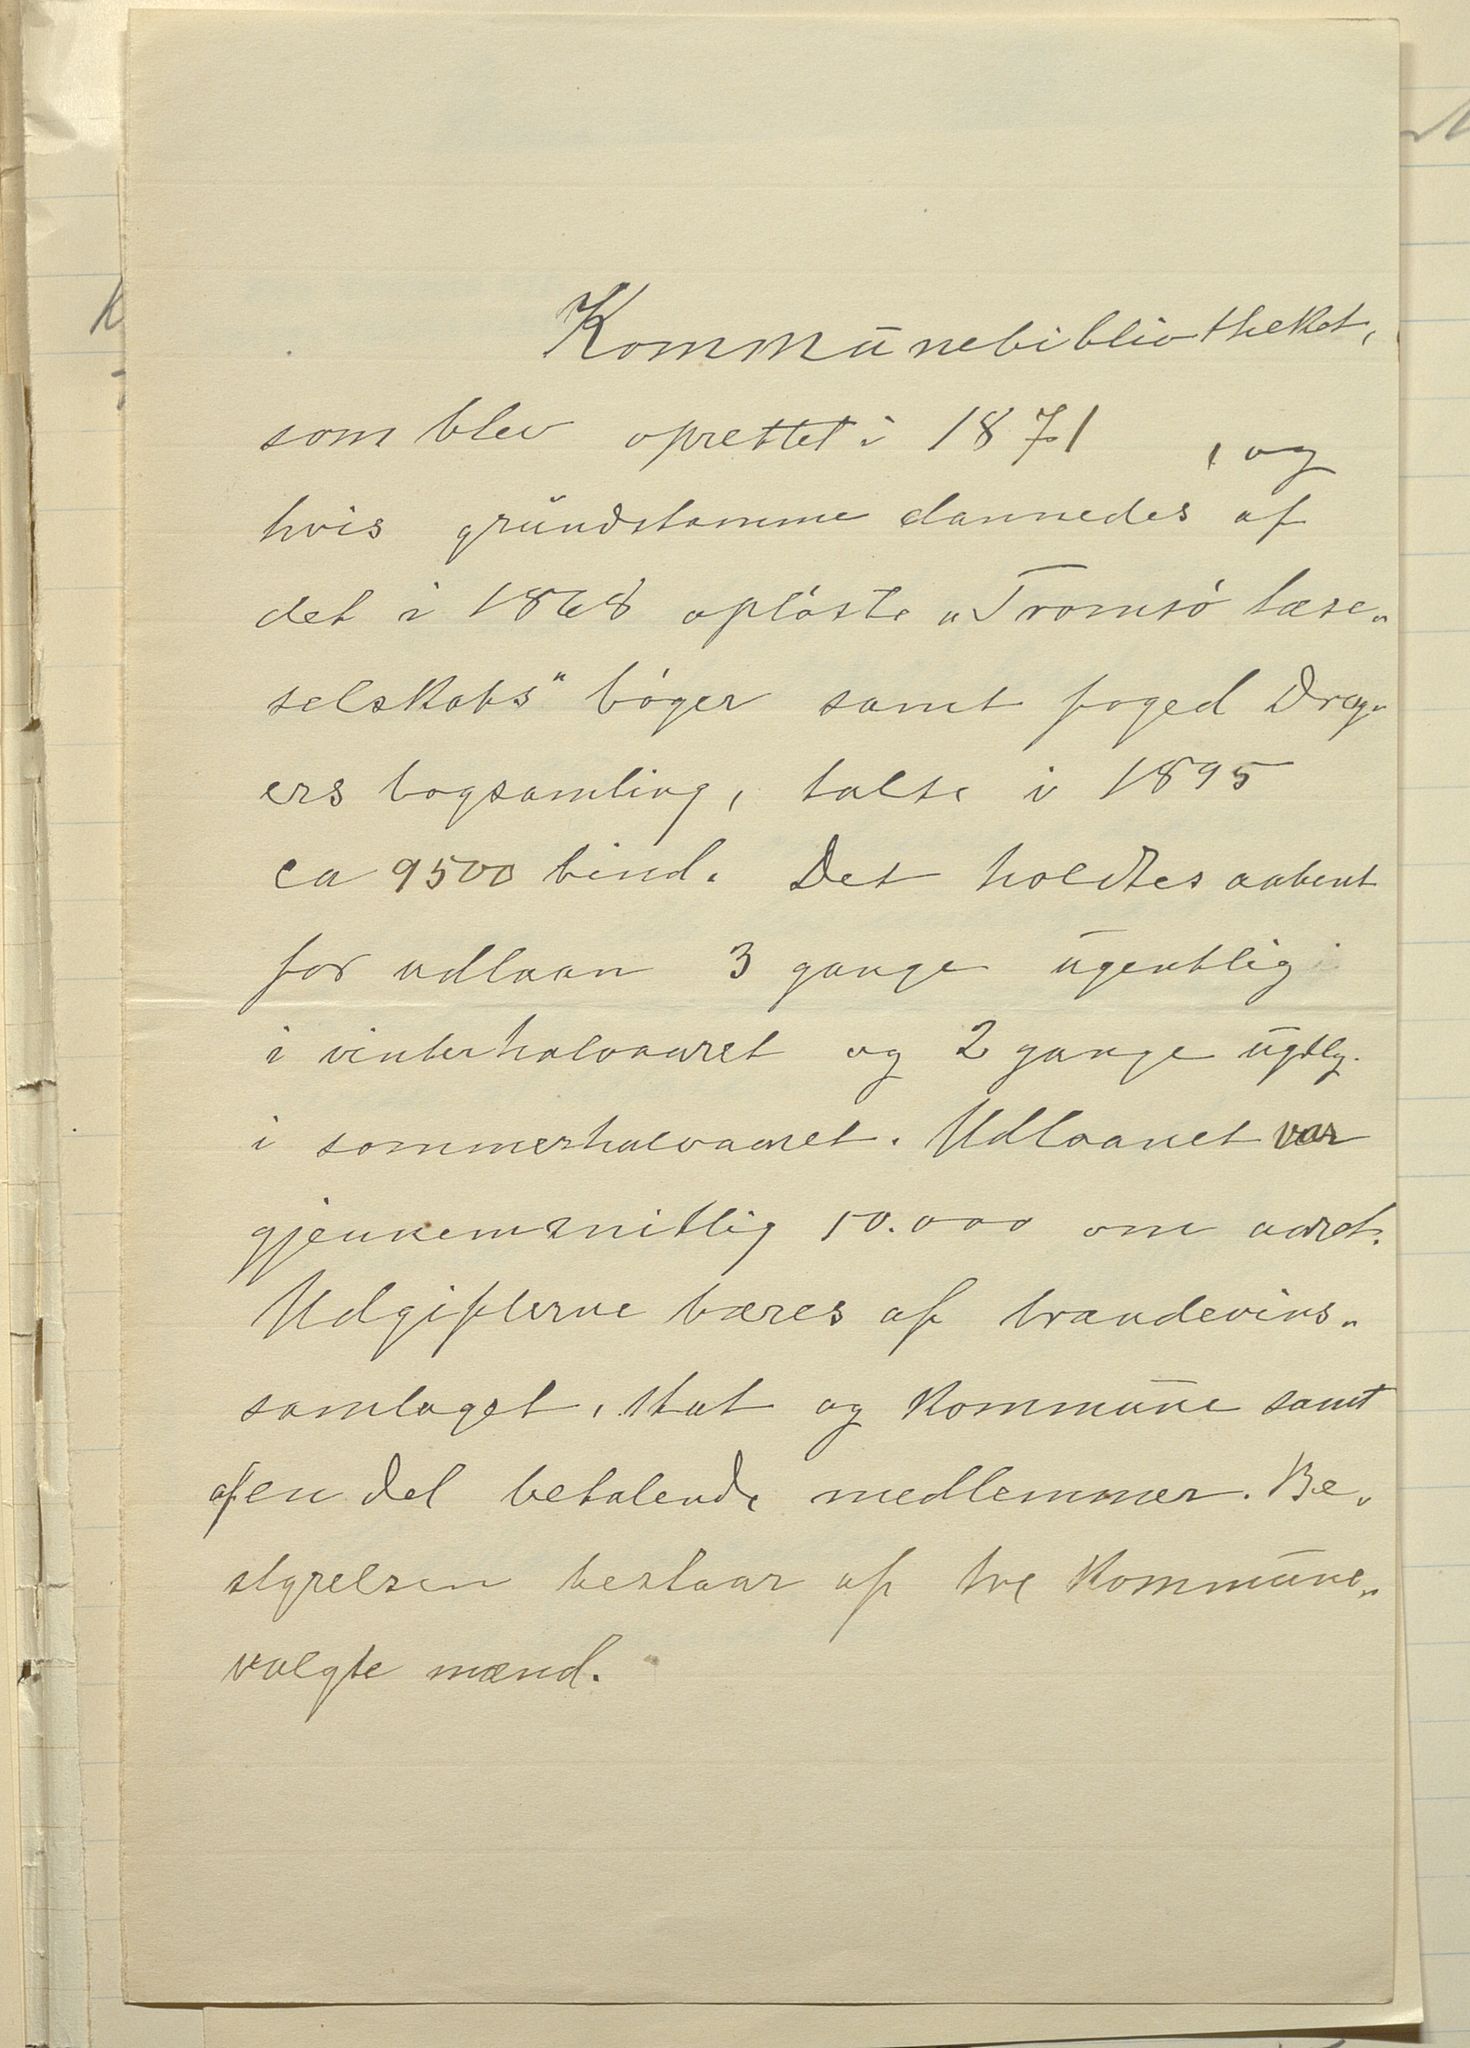 Kommunebibliotheket,
som blev oprettet i 1871 , og
hvis grundstamme dannedes af
det i 1868 opløste „Tromsø læse-
selskabs" bøger samt foged Drey-
ers bogsamling, talte i 1895
ca 9500 bind. Det holdtes aabent
for udlaan 3 gange ugentlig
i vinterhalvaaret og 2 gange ugtlg.
i sommerhalvaaret. Udlaanet var
gjennemsnitlig 10.000 om aaret.
Udgifterne bæres af brændevins-
samlaget, stat og kommune samt
af en del betalende medlemmer. Be-
styrelsen bestaar af tre kommune-
valgte mænd.